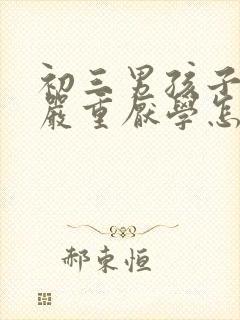 初三男孩子
嚴重厭學怎
郝東恒